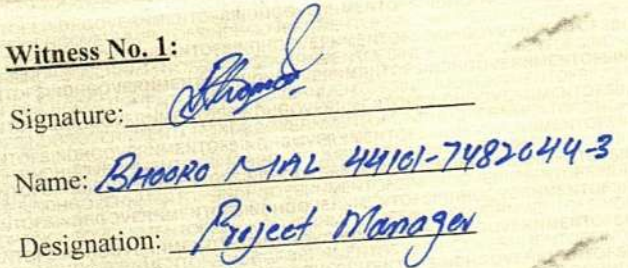 Witness No. 1:
Signature:
Name: BHOORO MAL 44101-7482044-3
Designation: Project Manager